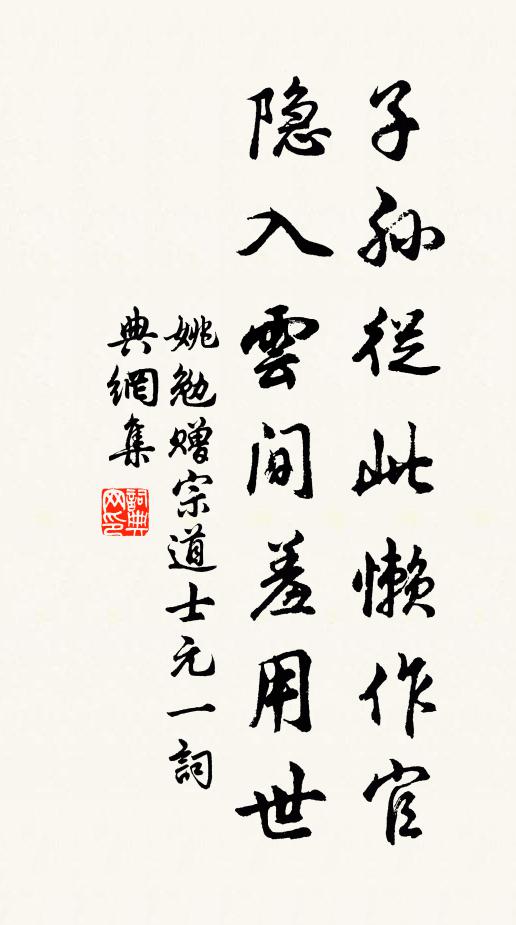 子孙從此懒作官
隐入雲间羞用世
姚勉赠宗道士元一詞
典網集
詞典网印